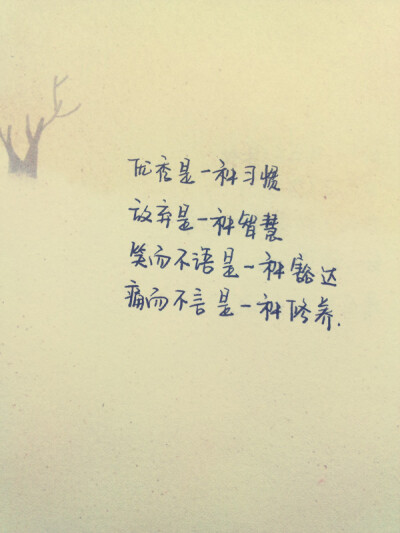 优秀是一种习惯
放弃是一种智慧
笑而不语是一种豁达
痛而不言是一种修养.